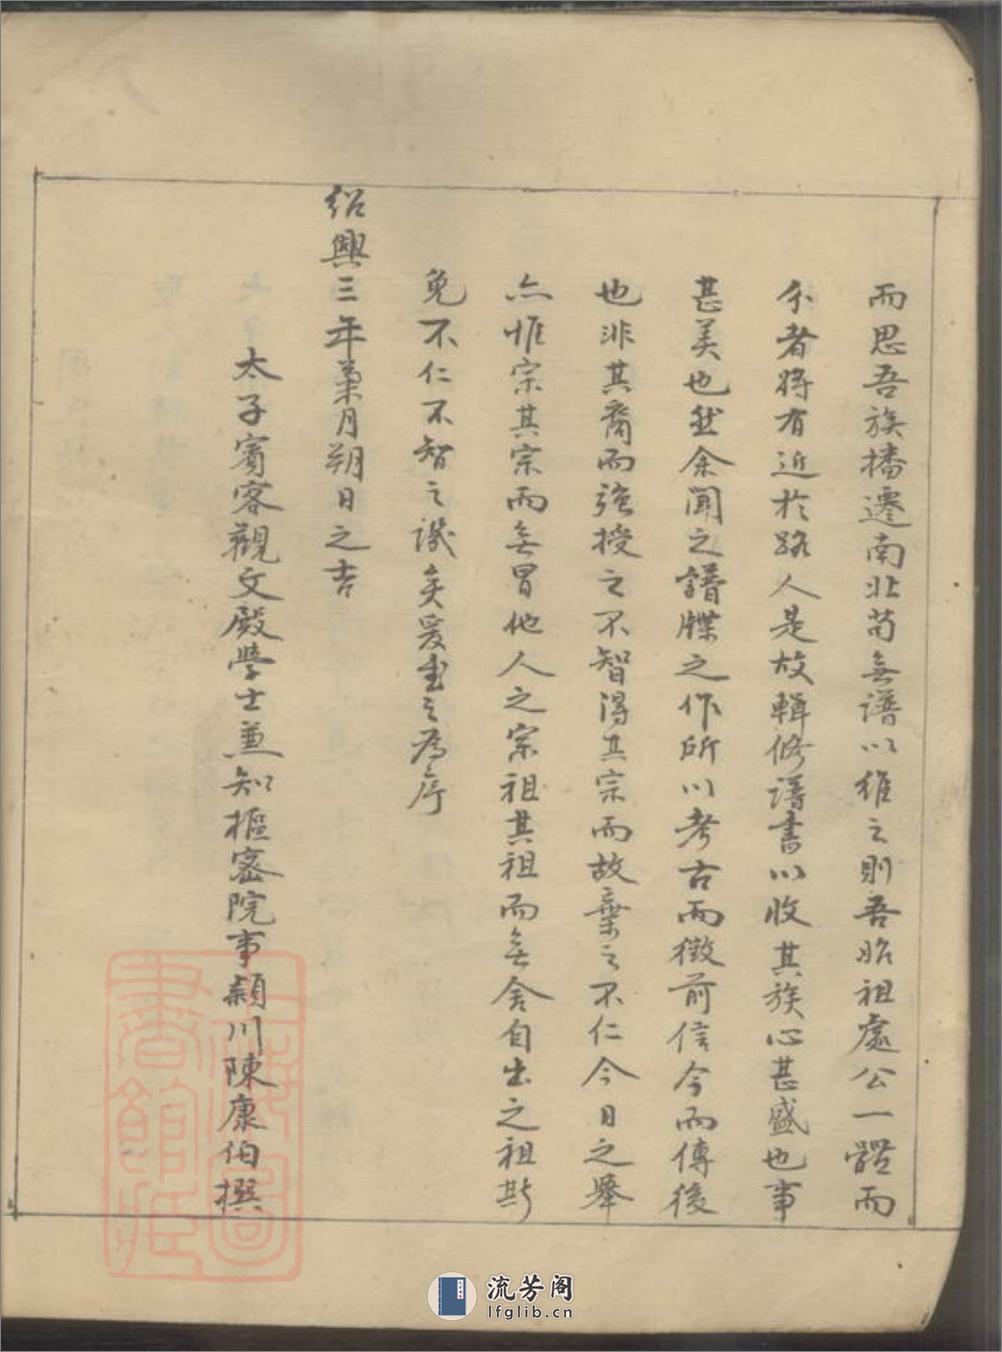 而思吾族播遷南北苟無譜以維之則吾昭祖處公一體而
分者將有近於路人是故輯修譜書以收其族心甚盛也事
甚美也然余聞之譜牒之作所以考古而徵前信今而傳後
也非其裔而強授之不智得其宗而故棄之不仁今日之舉
亦惟宗其宗而無冒他人之宗祖其祖而無舍自出之祖斯
免不仁不智之譏矣爰書之為序
紹興三年菓月朔日之吉
太子賓客觀文殿學士兼知樞密院事潁川陳康伯撰
上海圖書館藏
流芳阁
lfglib.cn